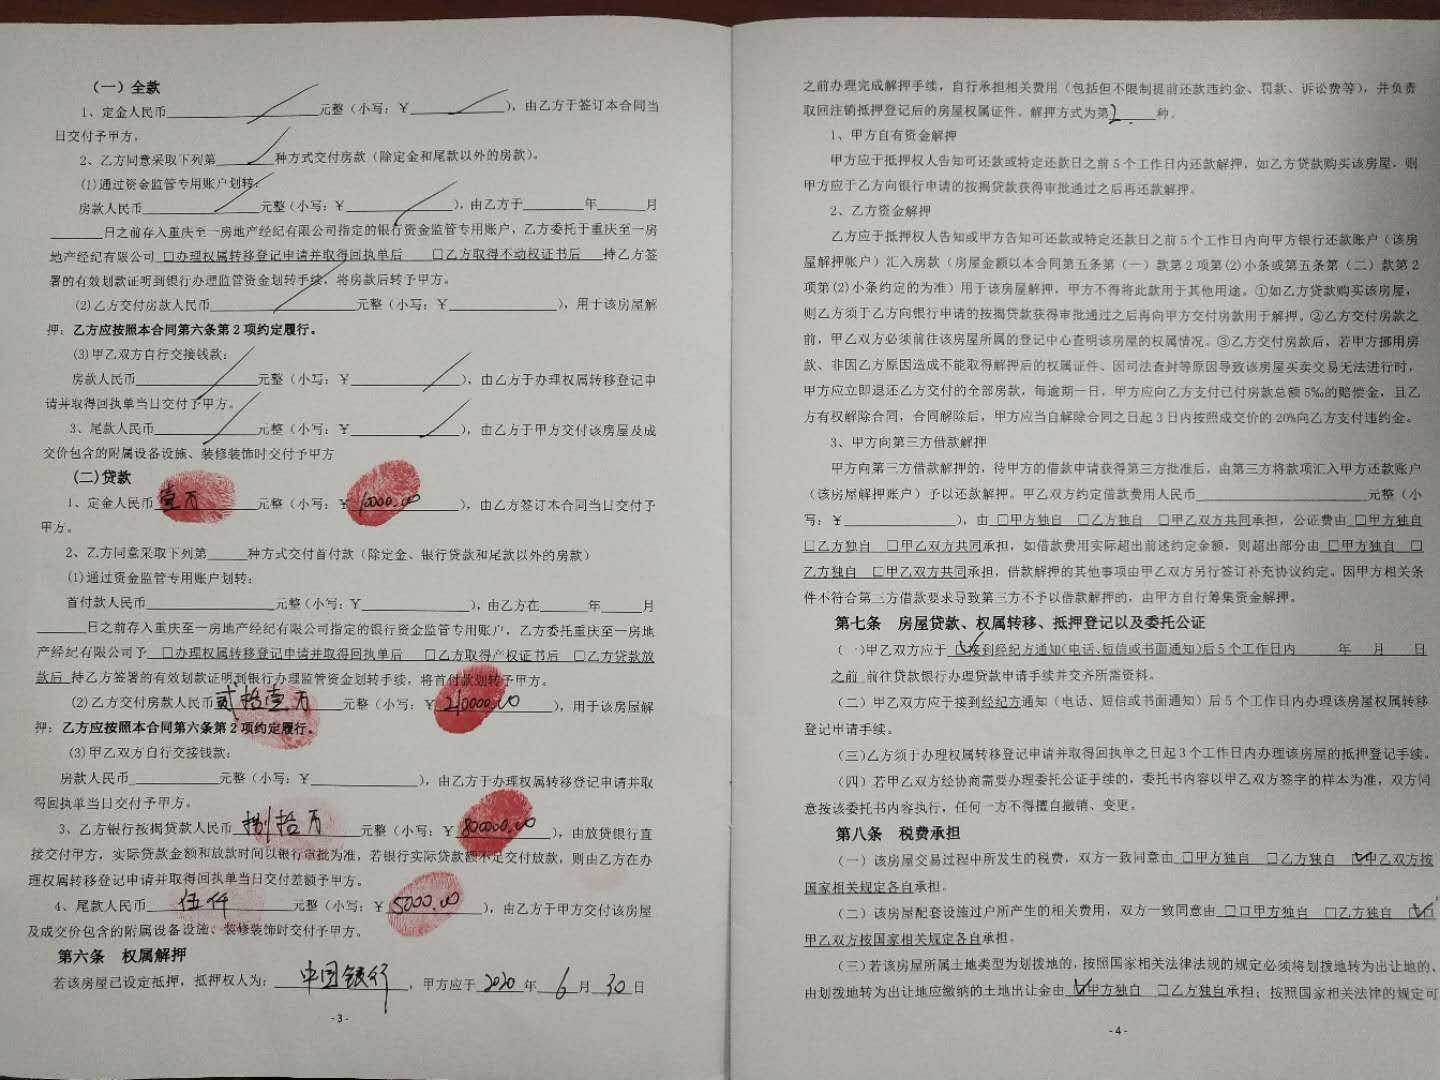 （一）全款
1、定金人民币__________元整（小写：￥__________），由乙方于签订本合同当
日交付予甲方。
2、乙方同意采取下列第______种方式交付房款（除定金和尾款以外的房款）。
(1)通过资金监管专用账户划转：
房款人民币__________元整（小写：￥__________），由乙方于______年______月
______日之前存入重庆至一房地产经纪有限公司指定的银行资金监管专用账户，乙方委托于重庆至一房
地产经纪有限公司 □办理权属转移登记申请并取得回执单后 □乙方取得不动权证书后 持乙方签
署的有效划款证明到银行办理监管资金划转手续，将房款后转予甲方。
(2)乙方交付房款人民币__________元整（小写：￥__________），用于该房屋解
押：乙方应按照本合同第六条第2项约定履行。
(3)甲乙双方自行交接钱款：
房款人民币__________元整（小写：￥__________），由乙方于办理权属转移登记申
请并取得回执单当日交付予甲方。
3、尾款人民币__________元整（小写：￥__________），由乙方于甲方交付该房屋及成
交价包含的附属设备设施、装修装饰时交付予甲方
(二)贷款
1、定金人民币 壹万 元整（小写：￥ 10000.00 ），由乙方签订本合同当日交付予
甲方。
2、乙方同意采取下列第______种方式交付首付款（除定金、银行贷款和尾款以外的房款）
(1)通过资金监管专用账户划转：
首付款人民币__________元整（小写：￥__________），由乙方在______年______月
______日之前存入重庆至一房地产经纪有限公司指定的银行资金监管专用账户，乙方委托重庆至一房地
产经纪有限公司予 □办理权属转移登记申请并取得回执单后 □乙方取得产权证书后 □乙方贷款放
款后 持乙方签署的有效划款证明到银行办理监管资金划转手续，将首付款划转予甲方。
(2)乙方交付房款人民币 贰拾壹万 元整（小写：￥ 210000.00 ），用于该房屋解
押：乙方应按照本合同第六条第2项约定履行。
(3)甲乙双方自行交接钱款：
房款人民币__________元整（小写：￥__________），由乙方于办理权属转移登记申请并取
得回执单当日交付予甲方。
3、乙方银行按揭贷款人民币 捌拾万 元整（小写：￥ 800000.00 ），由放贷银行直
接交付甲方，实际贷款金额和放款时间以银行审批为准，若银行实际贷款额不足交付放款，则由乙方在办
理权属转移登记申请并取得回执单当日交付差额予甲方。
4、尾款人民币 伍仟 元整（小写：￥ 5000.00 ），由乙方于甲方交付该房屋
及成交价包含的附属设备设施、装修装饰时交付予甲方。
第六条 权属解押
若该房屋已设定抵押，抵押权人为： 中国银行 ，甲方应于 2020 年 6 月 30 日
-3-
之前办理完成解押手续，自行承担相关费用（包括但不限制提前还款违约金、罚款、诉讼费等），并负责
取回注销抵押登记后的房屋权属证件。解押方式为第 2. 种。
1、甲方自有资金解押
甲方应于抵押权人告知可还款或特定还款日之前5个工作日内还款解押，如乙方贷款购买该房屋，则
甲方应于乙方向银行申请的按揭贷款获得审批通过之后再还款解押。
2、乙方资金解押
乙方应于抵押权人告知或甲方告知可还款或特定还款日之前5个工作日内向甲方银行还款账户（该房
屋解押帐户）汇入房款（房屋金额以本合同第五条第（一）款第2项第(2)小条或第五条第（二）款第2
项第(2)小条约定的为准）用于该房屋解押，甲方不得将此款用于其他用途。①如乙方贷款购买该房屋，
则乙方须于乙方向银行申请的按揭贷款获得审批通过之后再向甲方交付房款用于解押。②乙方交付房款之
前，甲乙双方必须前往该房屋所属的登记中心查明该房屋的权属情况。③乙方交付房款后，若甲方挪用房
款、非因乙方原因造成不能取得解押后的权属证件、因司法查封等原因导致该房屋买卖交易无法进行时，
甲方应立即退还乙方交付的全部房款，每逾期一日，甲方应向乙方支付已付房款总额5‰的赔偿金，且乙
方有权解除合同，合同解除后，甲方应当自解除合同之日起3日内按照成交价的20%向乙方支付违约金。
3、甲方向第三方借款解押
甲方向第三方借款解押的，待甲方的借款申请获得第三方批准后，由第三方将款项汇入甲方还款账户
（该房屋解押账户）予以还款解押。甲乙双方约定借款费用人民币__________元整（小
写：￥__________），由 □甲方独自 □乙方独自 □甲乙双方共同承担，公证费由 □甲方独自
□乙方独自 □甲乙双方共同承担，如借款费用实际超出前述约定金额，则超出部分由 □甲方独自 □
乙方独自 □甲乙双方共同承担，借款解押的其他事项由甲乙双方另行签订补充协议约定。因甲方相关条
件不符合第三方借款要求导致第三方不予以借款解押的，由甲方自行筹集资金解押。
第七条 房屋贷款、权属转移、抵押登记以及委托公证
（一）甲乙双方应于 ☑接到经纪方通知（电话、短信或书面通知）后5个工作日内 年 月 日
之前 前往贷款银行办理贷款申请手续并交齐所需资料。
（二）甲乙双方应于接到经纪方通知（电话、短信或书面通知）后5个工作日内办理该房屋权属转移
登记申请手续。
（三）乙方须于办理权属转移登记申请并取得回执单之日起3个工作日内办理该房屋的抵押登记手续。
（四）若甲乙双方经协商需要办理委托公证手续的，委托书内容以甲乙双方签字的样本为准，双方同
意按该委托书内容执行，任何一方不得擅自撤销、变更。
第八条 税费承担
（一）该房屋交易过程中所发生的税费，双方一致同意由 □甲方独自 □乙方独自 ☑甲乙双方按
国家相关规定各自承担。
（二）该房屋配套设施过户所产生的相关费用，双方一致同意由 □□甲方独自 □乙方独自 ☑
甲乙双方按国家相关规定各自承担。
（三）若该房屋所属土地类型为划拨地的，按照国家相关法律法规的规定必须将划拨地转为出让地的、
由划拨地转为出让地应缴纳的土地出让金由 ☑甲方独自 □乙方独自承担；按照国家相关法律的规定可
-4-